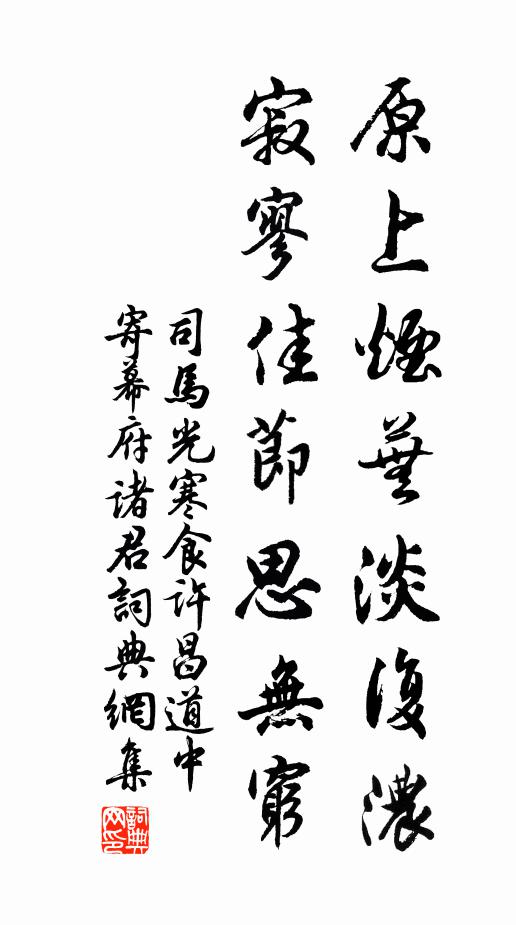 原上煙蕪淡復濃
寂寥佳節思無窮
司馬光寒食許昌道中
寄幕府諸君詞典網集
詞典
网印